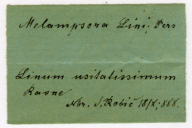 Melampsora Lini, Pers
Linum usitatissimum
Ravne
Nbr. S. Robič 18/8, 888.